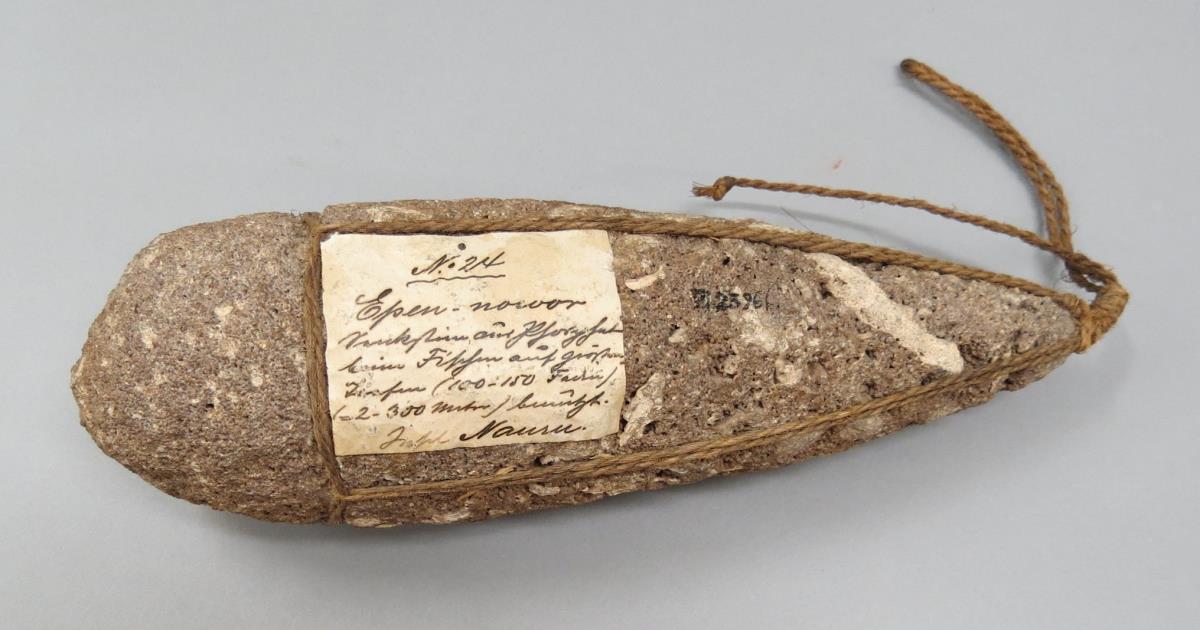 No 24
Epen-nowor
Senkstein aus Phosphat
beim Fischen auf großen
Tiefen (100-150 Faden)
(=2-300 Meter) benützt.
Insel Nauru.